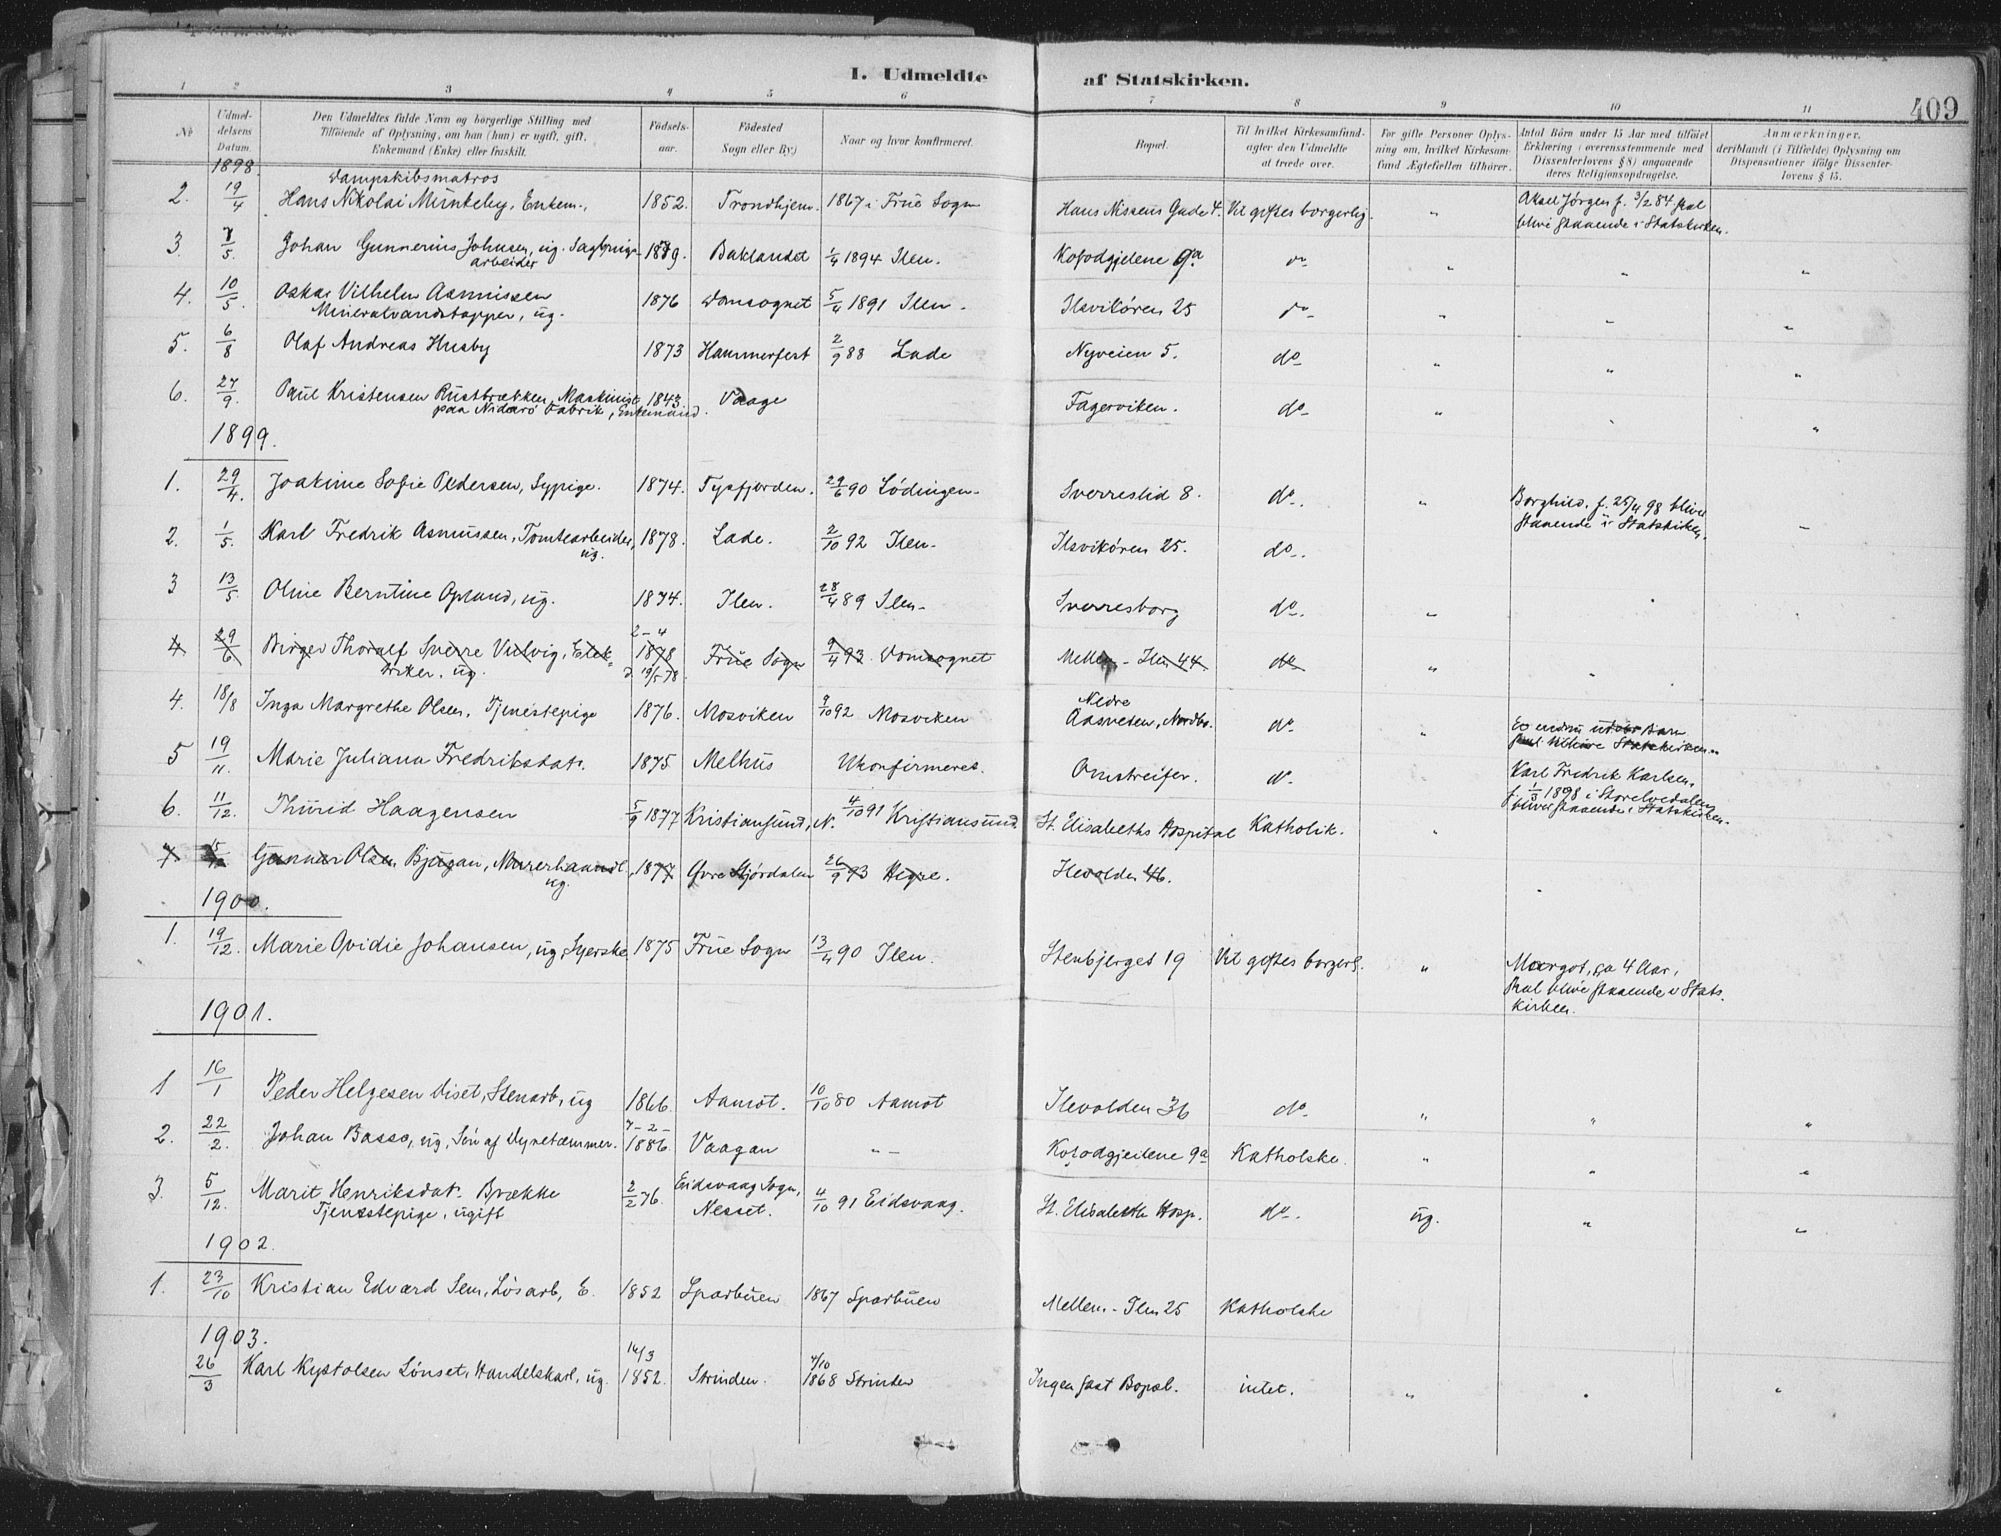 I. Udmeldte af Statskirken.
409
1 2 3 4 5 6 7 8 9 10 11
No
Udmel-
delsens
Datum.
Den Udmeldtes fulde Navn og borgerlige Stilling med
Tilføiende af Oplysning, om han (hun) er ugift, gift,
Enkemand (Enke) eller fraskilt.
Fødsels-
aar.
Fødested
Sogn eller By.)
Naar og hvor konfirmeret.
Bopæl.
Til hvilket Kirkesamfund-
agter den Udmeldte
at træde over.
For gifte Personer Oplys-
ning om, hvilket Kirkesam-
fund Ægtefællen tilhører.
Antal Børn under 15 Aar med tilføiet
Erklæring (overensstemmende med
Dissenterlovens § 8) angaaende
deres Religionsopdragelse.
Anmærkninger,
deriblandt (i Tilfælde) Oplysning om
Dispensationer ifølge Dissenter-
lovens § 15.
1898.
Dampskibsmatros
2. 19/4 Hans Nikolai Munkeby, Enkem., 1852. Trondhjem. 1867 i Frue Sogn Hans Nissens Gade 4. Vil giftes borgerlig. " Aksel Jørgen f. 3/2 84 skal
blive staaende i Statskirken.
3. 7/5 Johan Gunnerius Johnsen, ug. Sagbrugs- 1879. Baklandet 1/4 1894 Ilen. Kofodgjeilene 9a do " " "
arbeider
4. 10/5 Oskar Vilhelm Asmussen 1876 Domsognet 5/4 1891 Ilen. Ilsvikøren 25 do " " "
Mineralvandstapper, ug.
5. 6/8 Olaf Andreas Husby 1873 Hammerfest 2/9 88 Lade Nyveien 5. do " " "
6. 27/9. Paul Kristensen Rustbrækken, Maskinist 1843. Vaage Fagerviken. do " " "
paa Nidarø Fabrik, Enkemand.
1899.
1. 29/4. Joakime Sofie Pedersen, Sypige. 1874. Tysfjorden. 29/6 90 Lødingen. Sverreslid 8. do. " Borghild, f. 25/4 98 blive
staaende i Statskirken.
2. 1/5. Karl Fredrik Asmussen, Tomtearbeider, 1878. Lade. 2/10 92 Ilen. Ilsvikøren 25. do.
ug.
3 13/5. Oline Berntine Opland, ug. 1874. Ilen. 28/4 89 Ilen. Sverresborg do. "
2-4
4 29/6 Birger Thoralf Sverre Vulvig, Elek- 1878 Frue Sogn 9/4 93 Domsognet Mellem-Ilen 44 do "
triker, ug. d. 19/5 78.
4. 18/8 Inga Margrethe Olsen, Tjenestepige 1876. Mosviken 9/10 92 Mosviken Nedre
Aasveten, Nordbo. do "
5 19/11. Marie Juliana Fredriksdatr. 1875 Melhus Ukonfirmeret. Omstreifer. do Karl Fredrik Karlsen,
f. 1/3 1898 i Storelvedalen
bliver staaende i Statskirken.
6. 11/12. Thurid Haagensen 5/9 1877 Kristiansund, N. 4/10 91 Kristiansund. St. Elisabeths Hospital Katholik. "
7 Gunnar Olsen Bjugan, Murerhaandl. 1877 Øvre Stjørdalen 26/9 93 Hegre. Ilevolden 46.
ug.
1900.
1. 19/12. Marie Ovidie Johansen, ug, Syerske 1875 Frue Sogn 13/4 90 Ilen. Stenbjerget 19 Vil giftes borgerl. " Margot, ca 4 Aar,
skal blive staaende i Stats-
kirken.
1901.
1 16/1 Peder Helgesen Diset, Stenarb, ug 1866. Aamot. 10/10 80 Aamot Ilevolden 36 do " " "
7-2-
2. 22/2. Johan Basso, ug, Søn af Dyretæmmer. 1886. Vaagan "- Kofodgjeilene 9a Katholske. " " "
3. 5/12. Marit Henriksdat. Brække 2/2 76. Eidsvaag Sogn, 4/10 91 Eidsvaag. St. Elisabeths Hosp. do. ug. " "
Tjenestepige, ugift Nesset.
1902.
1. 23/10 Kristian Edvard Sem, Løsarb, E. 1852 Sparbuen 1867 Sparbuen Mellem-Ilen 25 Katholske
1903.
14/3 4/10
26/3 Karl Kystolsen Lønset, Handelskarl, ug. 1852. Strinden. 1868 Strinden Ingen fast Bopæl. intet. " " "